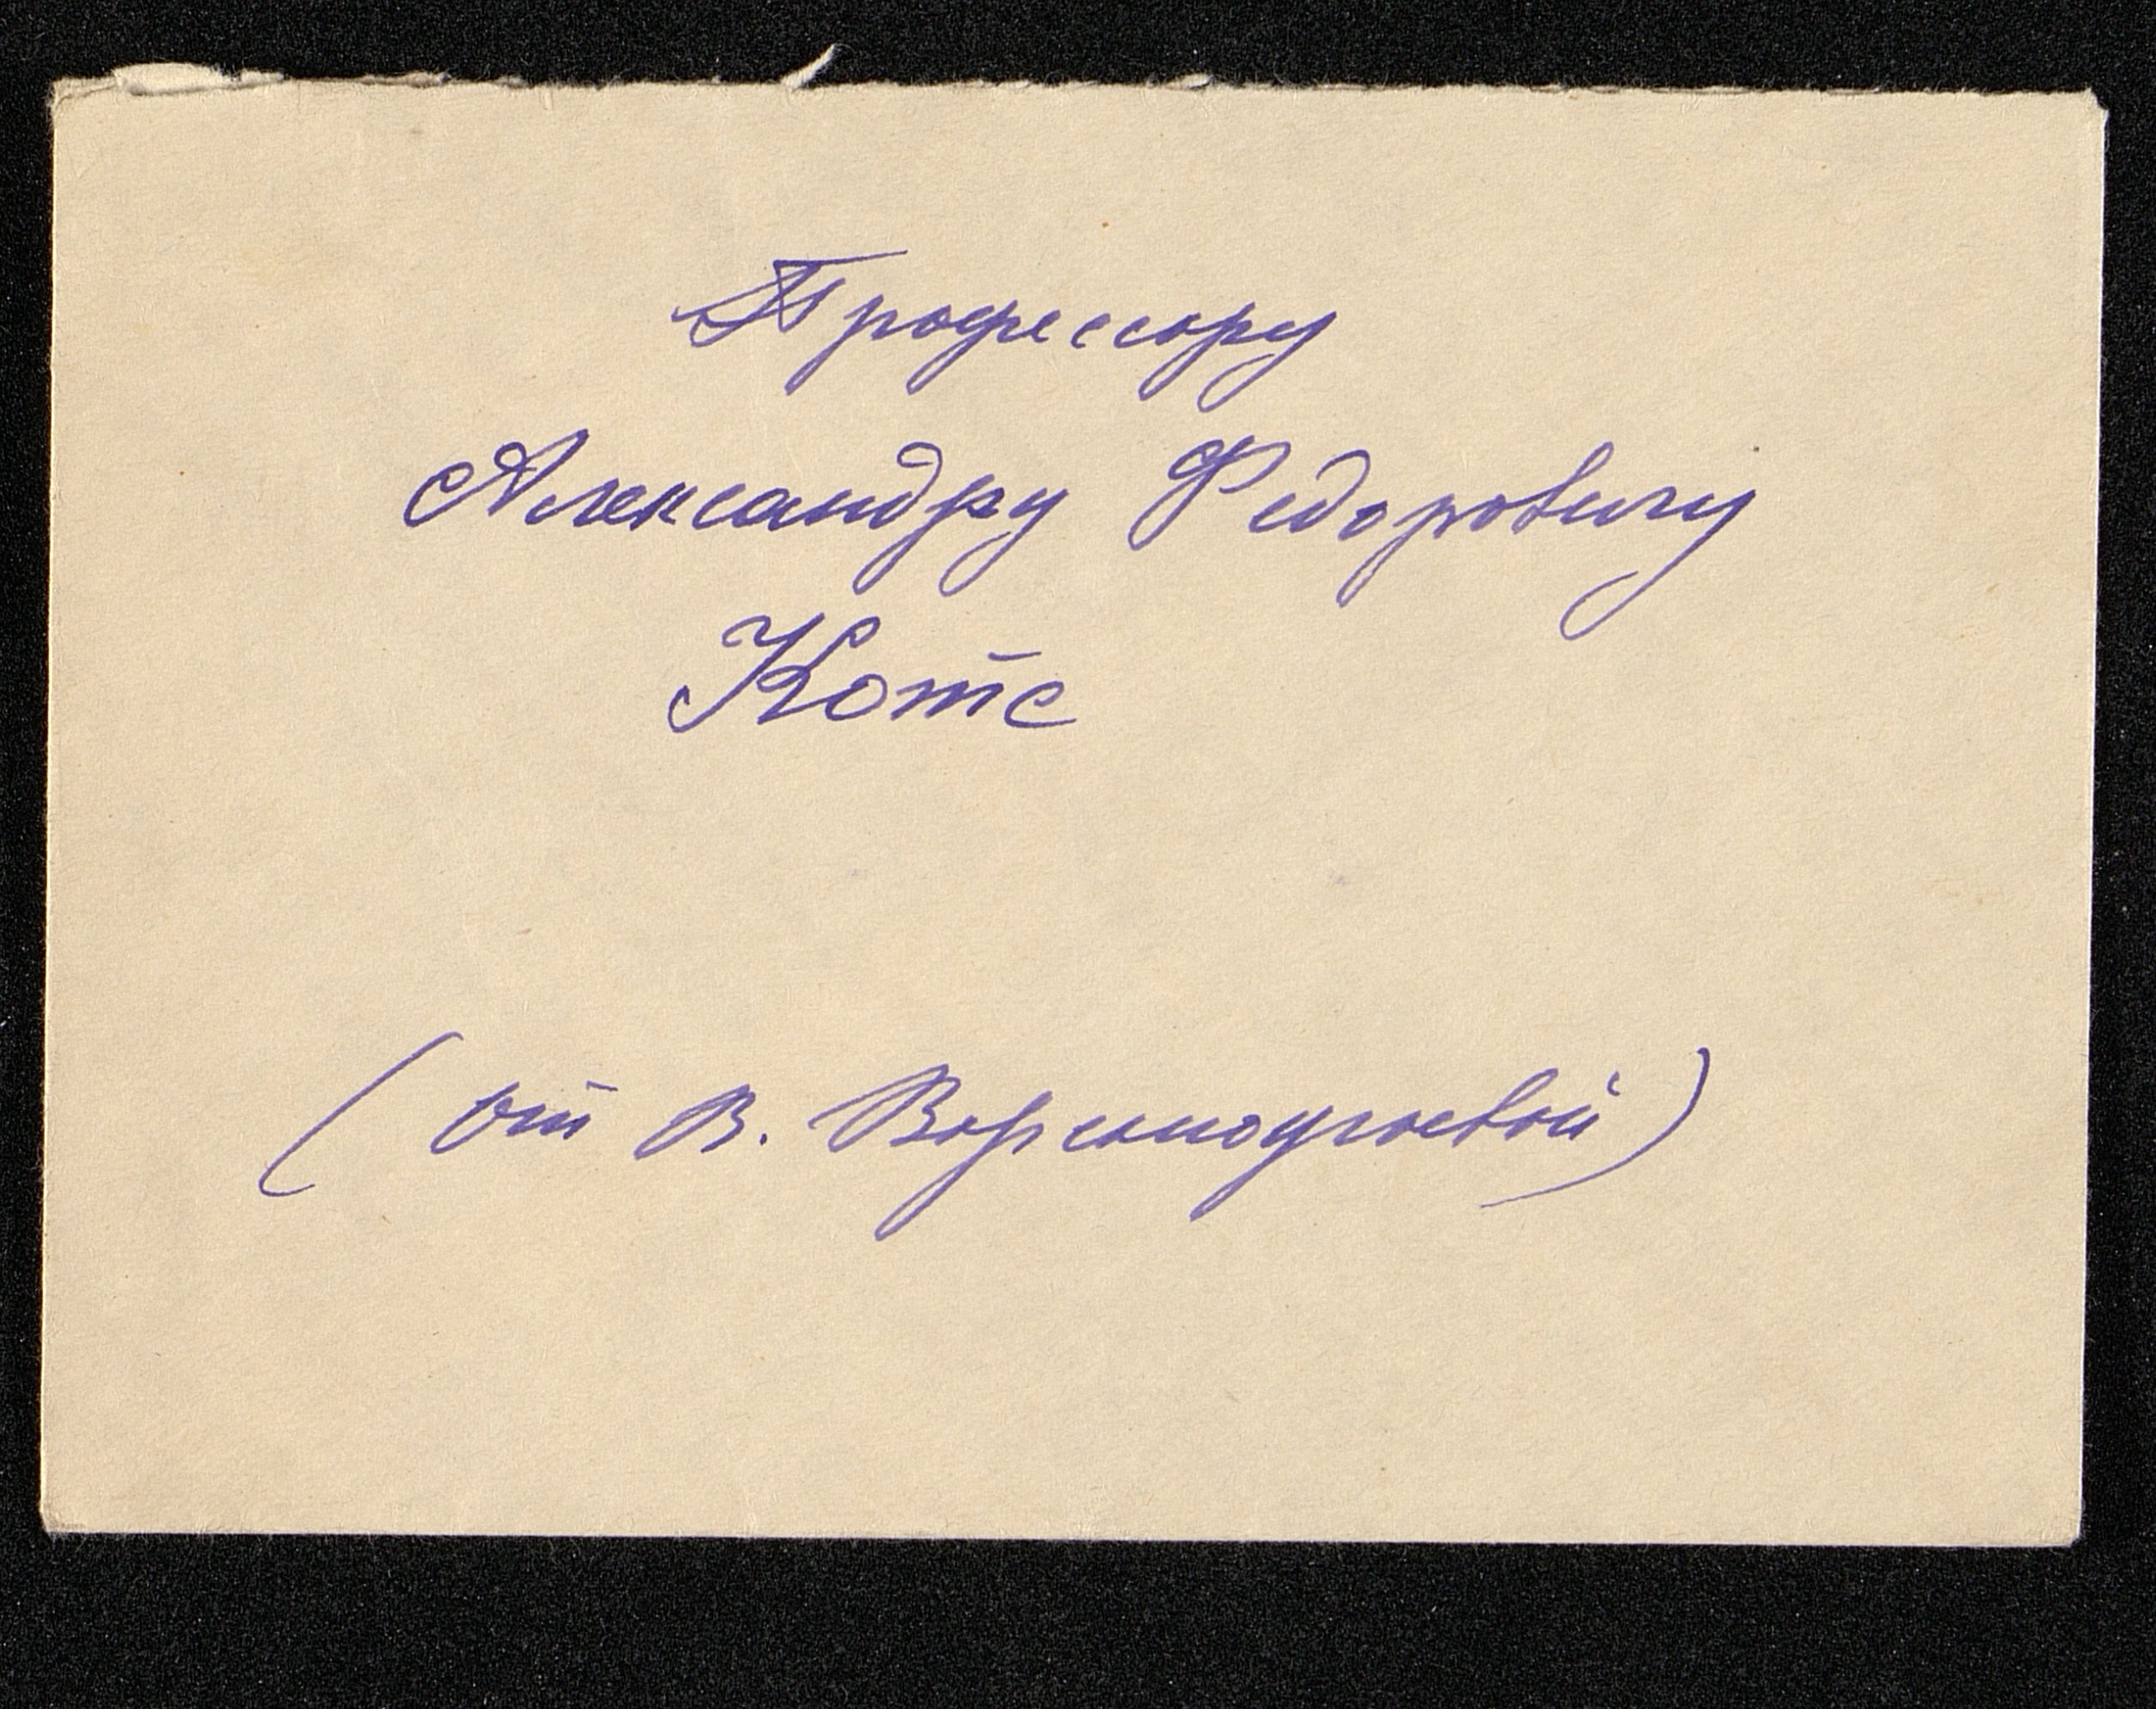 Профессору
Александру Федоровичу
Котс
(от В. Варсонофьевой)